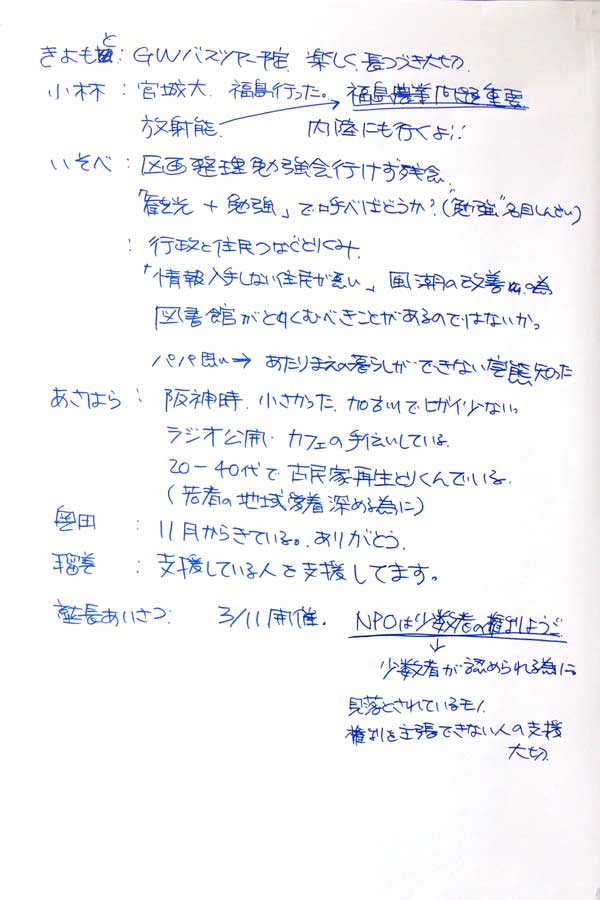 きよもと : GWバスツアー予定. 楽しく、長つづき大切.
小林 : 宮城大. 福島行った。→ 福島農業問題重要
放射能 内陸にも行くよ!!
いそべ : 区画整理勉強会行けず残念.
「観光 + 勉強」で呼べばどうか?("勉強"名目しんどい)
: 行政と住民つなぐとりくみ.
「情報入手しない住民が悪い」風潮の改善の為
図書館がとりくむべきことがあるのではないか。
パパ思い→ あたりまえの暮らしができない実態知った
あさはら : 阪神時. 小さかった. 加古川でヒガイ少ない。
ラジオ公開・カフェの手伝いしている.
20-40代で古民家再生とりくんでいる.
(若者の地域愛着深める為に)
奥田 : 11月からきている。ありがとう.
瑠美 : 支援している人を支援してます。
塾長あいさつ: 3/11開催. NPOは少数者の権利ようご
↓
少数者が認められる為に。
見落とされているモノ.
権利を主張できない人の支援
大切.